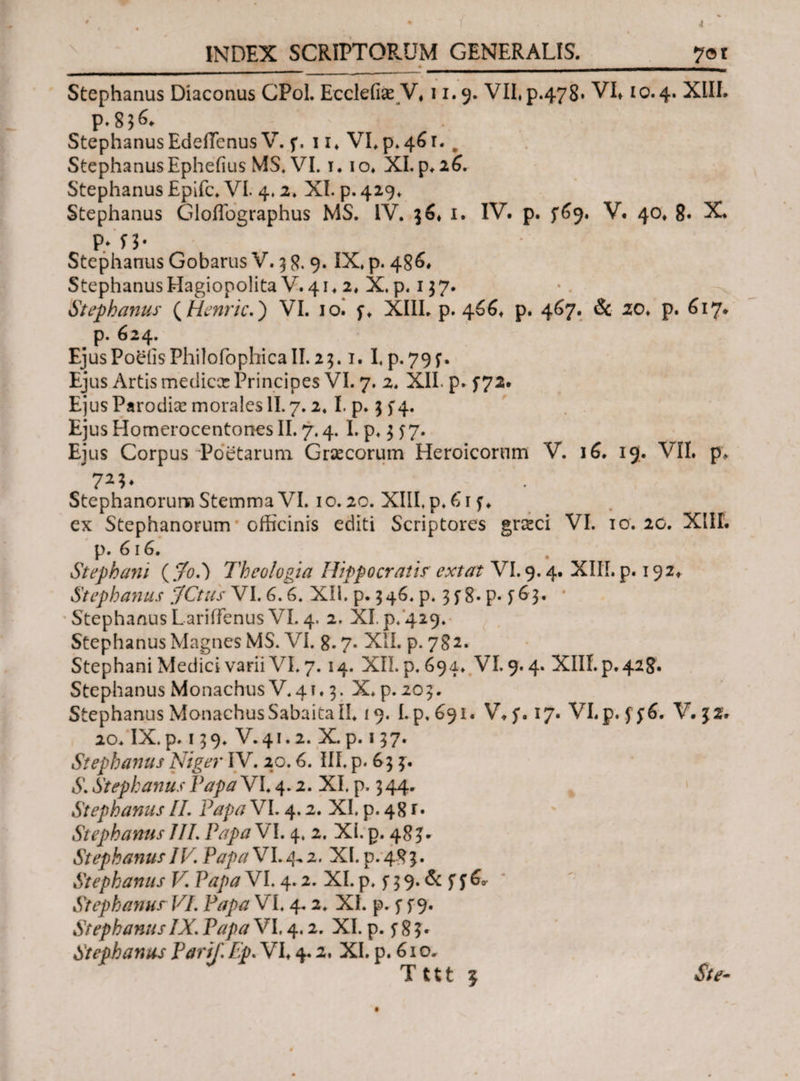 INDEX SCRIPTORUM GENERALIS. 701
Stephanus Diaconus CPol. Ecclesiæ V. 11. 9. VII. p. 478. VI. 10. 4. XIII.
p. 836.
Stephanus Edessenus V. 5. 11. VI. p. 461.
Stephanus Ephesius MS. VI. 1. 10. XI. p. 26.
Stephanus Episc. VI. 4. 2. XI. p. 429.
Stephanus Glossographus MS. IV. 36. 1. IV. p. 569. V. 40. 8. X.
p. 53.
Stephanus Gobarus V. 38. 9. IX. p. 486.
Stephanus Hagiopolita V. 41. 2. X. p. 137.
Stephanus (Henric.) VI. 10. 5. XIII. p. 466. p. 467. & 20. p. 617.
p. 624.
Ejus Poësis Philosophica II. 23. 1. I. p. 795.
Ejus Artis medicæ Principes VI. 7. 2. XII. p. 572.
Ejus Parodiæ morales II. 7. 2. I. p. 354.
Ejus Homerocentones II. 7. 4. I. p. 357.
Ejus Corpus Poëtarum Græcorum Heroicorum V. 16. 19. VII. p.
723.
Stephanorum Stemma VI. 10. 20. XIII. p. 615.
ex Stephanorum officinis editi Scriptores græci VI. 10. 20. XIII.
p. 616.
Stephani (Jo.) Theologia Hippocratis extat VI. 9. 4. XIII. p. 192.
Stephanus JCtus VI. 6. 6. XII. p. 346. p. 358. p. 563.
Stephanus Larissenus VI. 4. 2. XI. p. 429.
Stephanus Magnes MS. VI. 8. 7. XII. p. 782.
Stephani Medici varii VI. 7. 14. XII. p. 694. VI. 9. 4. XIII. p. 428.
Stephanus Monachus V. 41. 3. X. p. 203.
Stephanus Monachus Sabaita II. 19. I. p. 691. V. 5. 17. VI. p. 556. V. 32.
20. IX. p. 139. V. 41. 2. X. p. 137.
Stephanus Niger IV. 20. 6. III. p. 633.
S. Stephanus Papa VI. 4. 2. XI. p. 344.
Stephanus II. Papa VI. 4. 2. XI. p. 481.
Stephanus III. Papa VI. 4. 2. XI. p. 483.
Stephanus IV. Papa VI. 4. 2. XI. p. 483.
Stephanus V. Papa VI. 4. 2. XI. p. 539. & 556.
Stephanus VI. Papa VI. 4. 2. XI. p. 559.
Stephanus IX. Papa VI. 4. 2. XI. p. 583.
Stephanus Paris. Ep. VI. 4. 2. XI. p. 610.
Tttt 3 Ste-